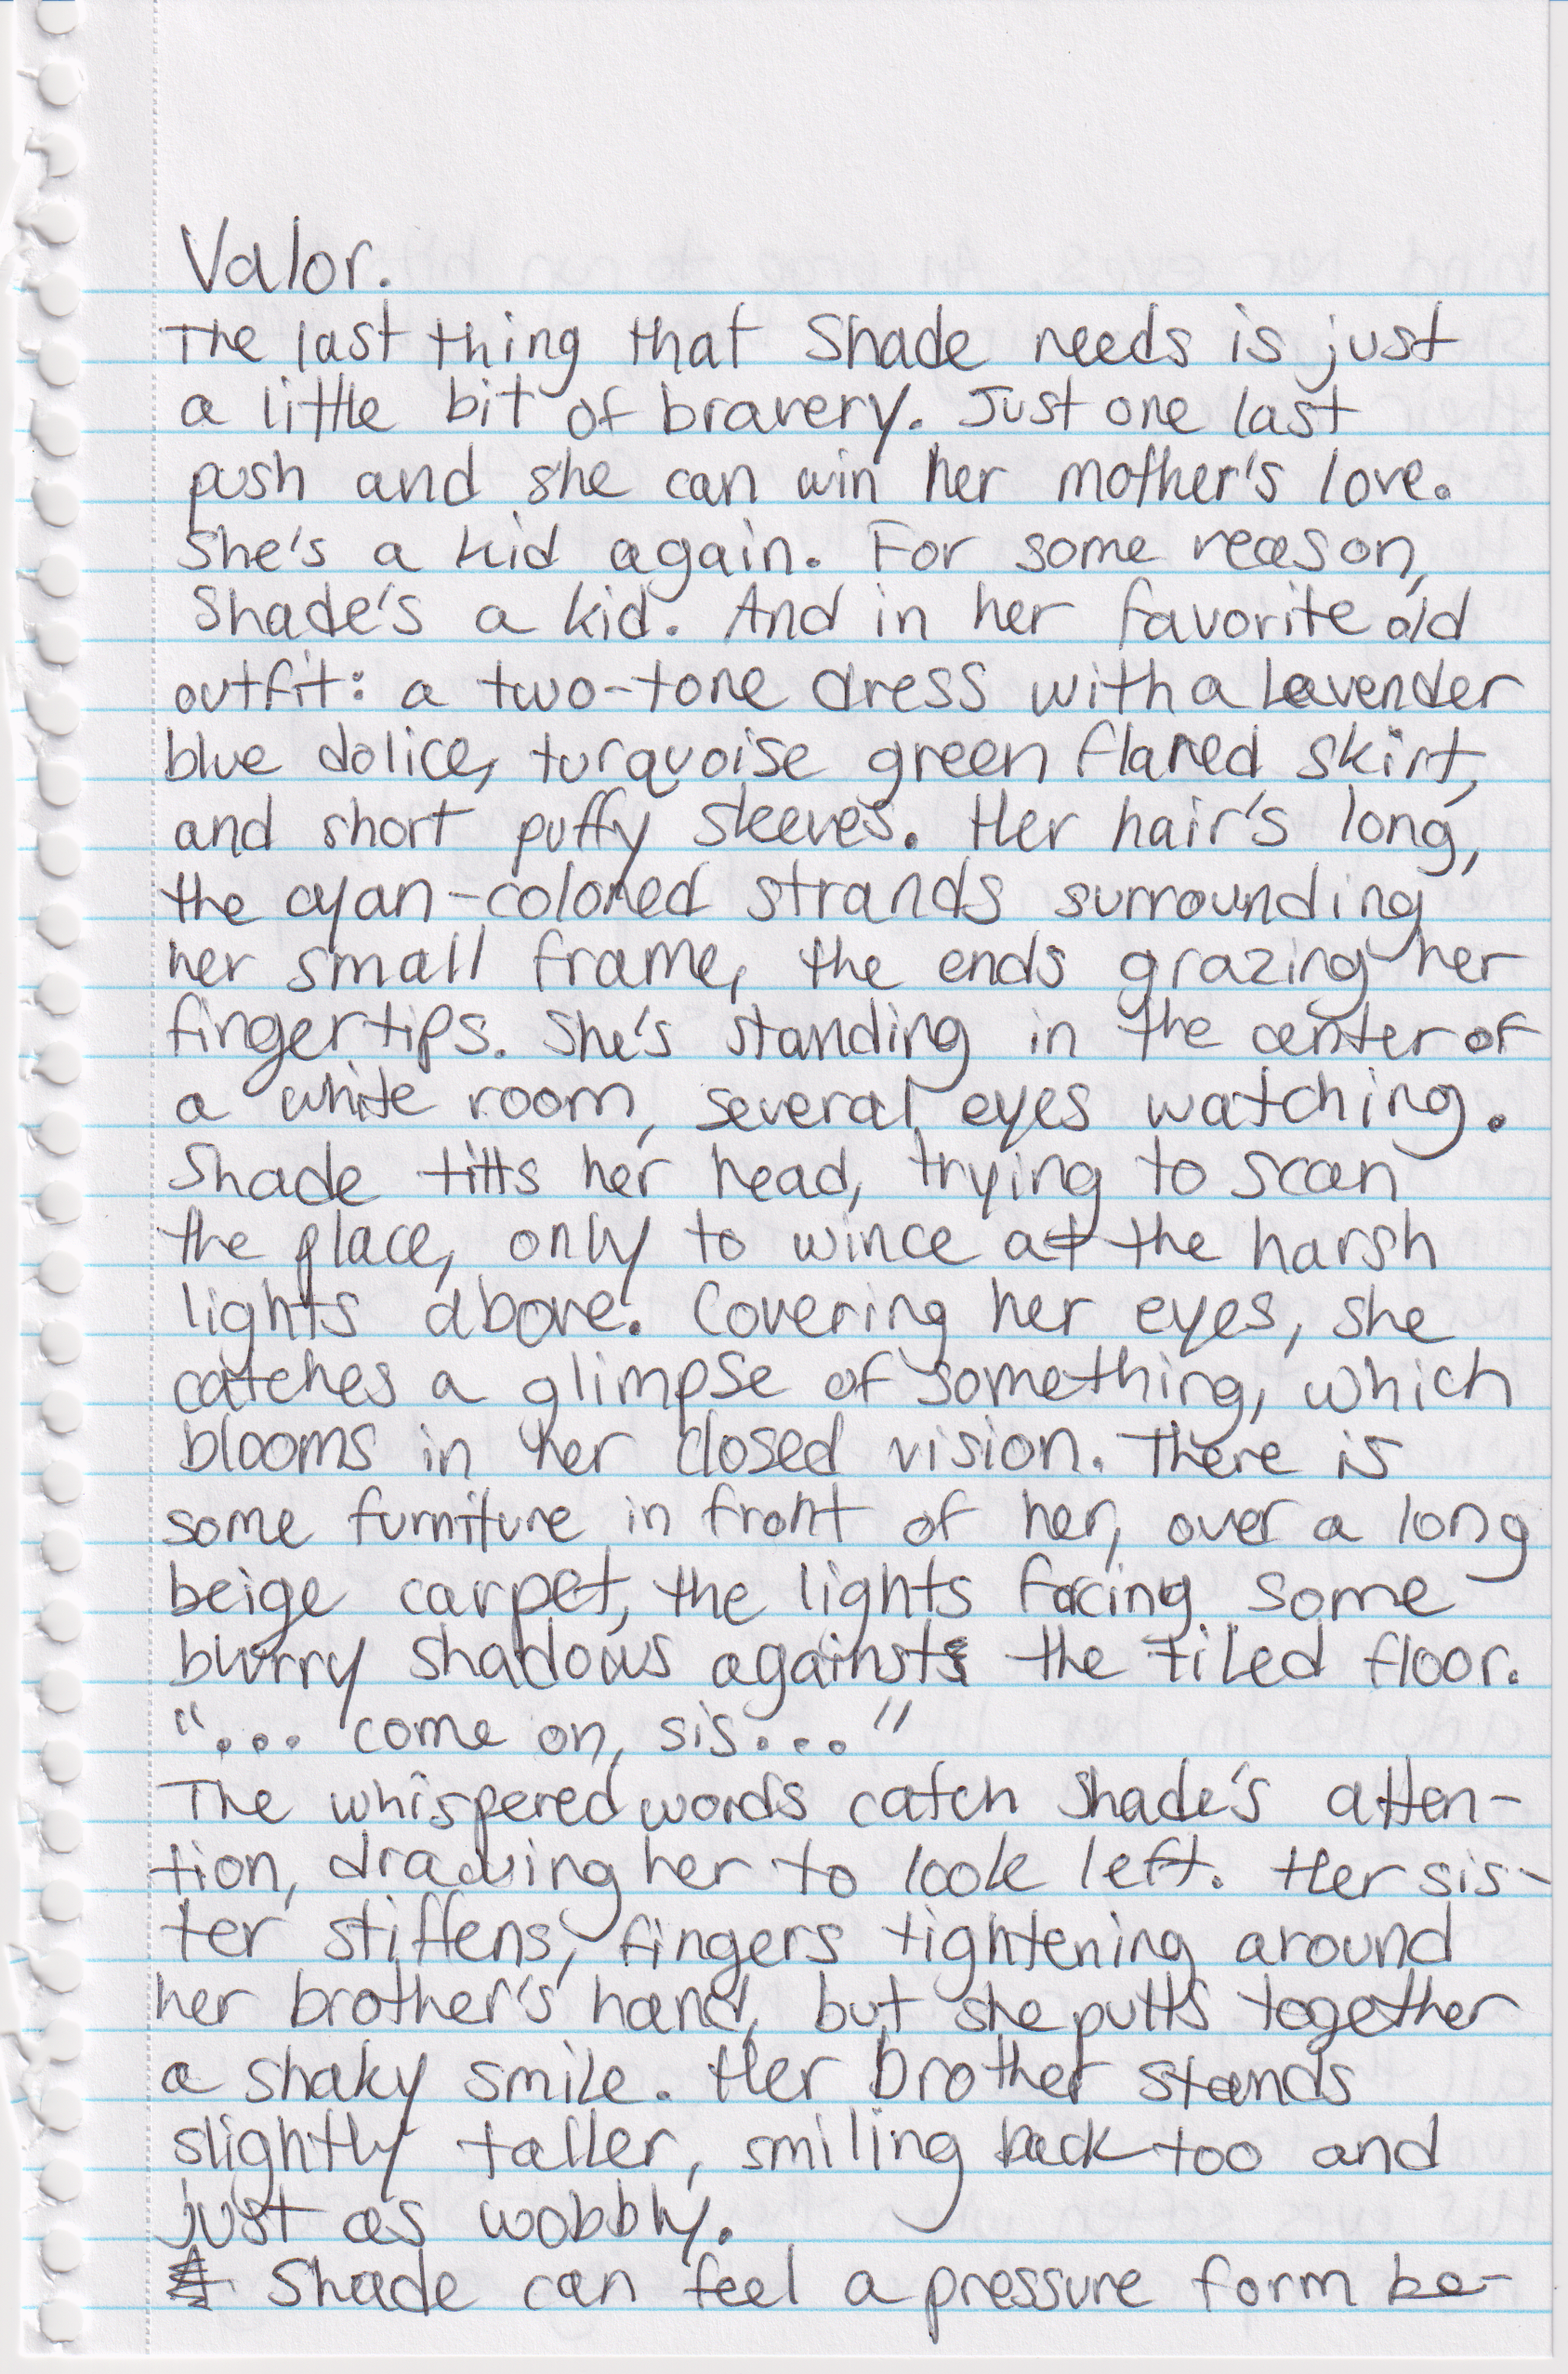 Valor.
The last thing that Shade needs is just
a little bit of bravery. Just one last
push and she can win her mother's love.
She's a kid again. For some reason,
Shade's a kid. And in her favorite old
outfit: a two-tone dress with a lavender
blue dolice, turquoise green flared skirt,
and short puffy sleeves. Her hair's long,
the cyan-colored strands surrounding
her small frame, the ends grazing her
fingertips. She's standing in the center of
a white room, several eyes watching.
Shade tilts her head, trying to scan
the place, only to wince at the harsh
lights above. Covering her eyes, she
catches a glimpse of something, which
blooms in her closed vision. There is
some furniture in front of her, over a long
beige carpet, the lights facing some
blurry shadows against the tiled floor.
"... come on, sis..."
The whispered words catch Shade's atten-
tion, drawing her to look left. Her sis-
ter stiffens, fingers tightening around
her brother's hand, but she putts together
a shaky smile. Her brother stands
slightly taller, smiling back too and
just as wobbly.
Shade can feel a pressure form be-